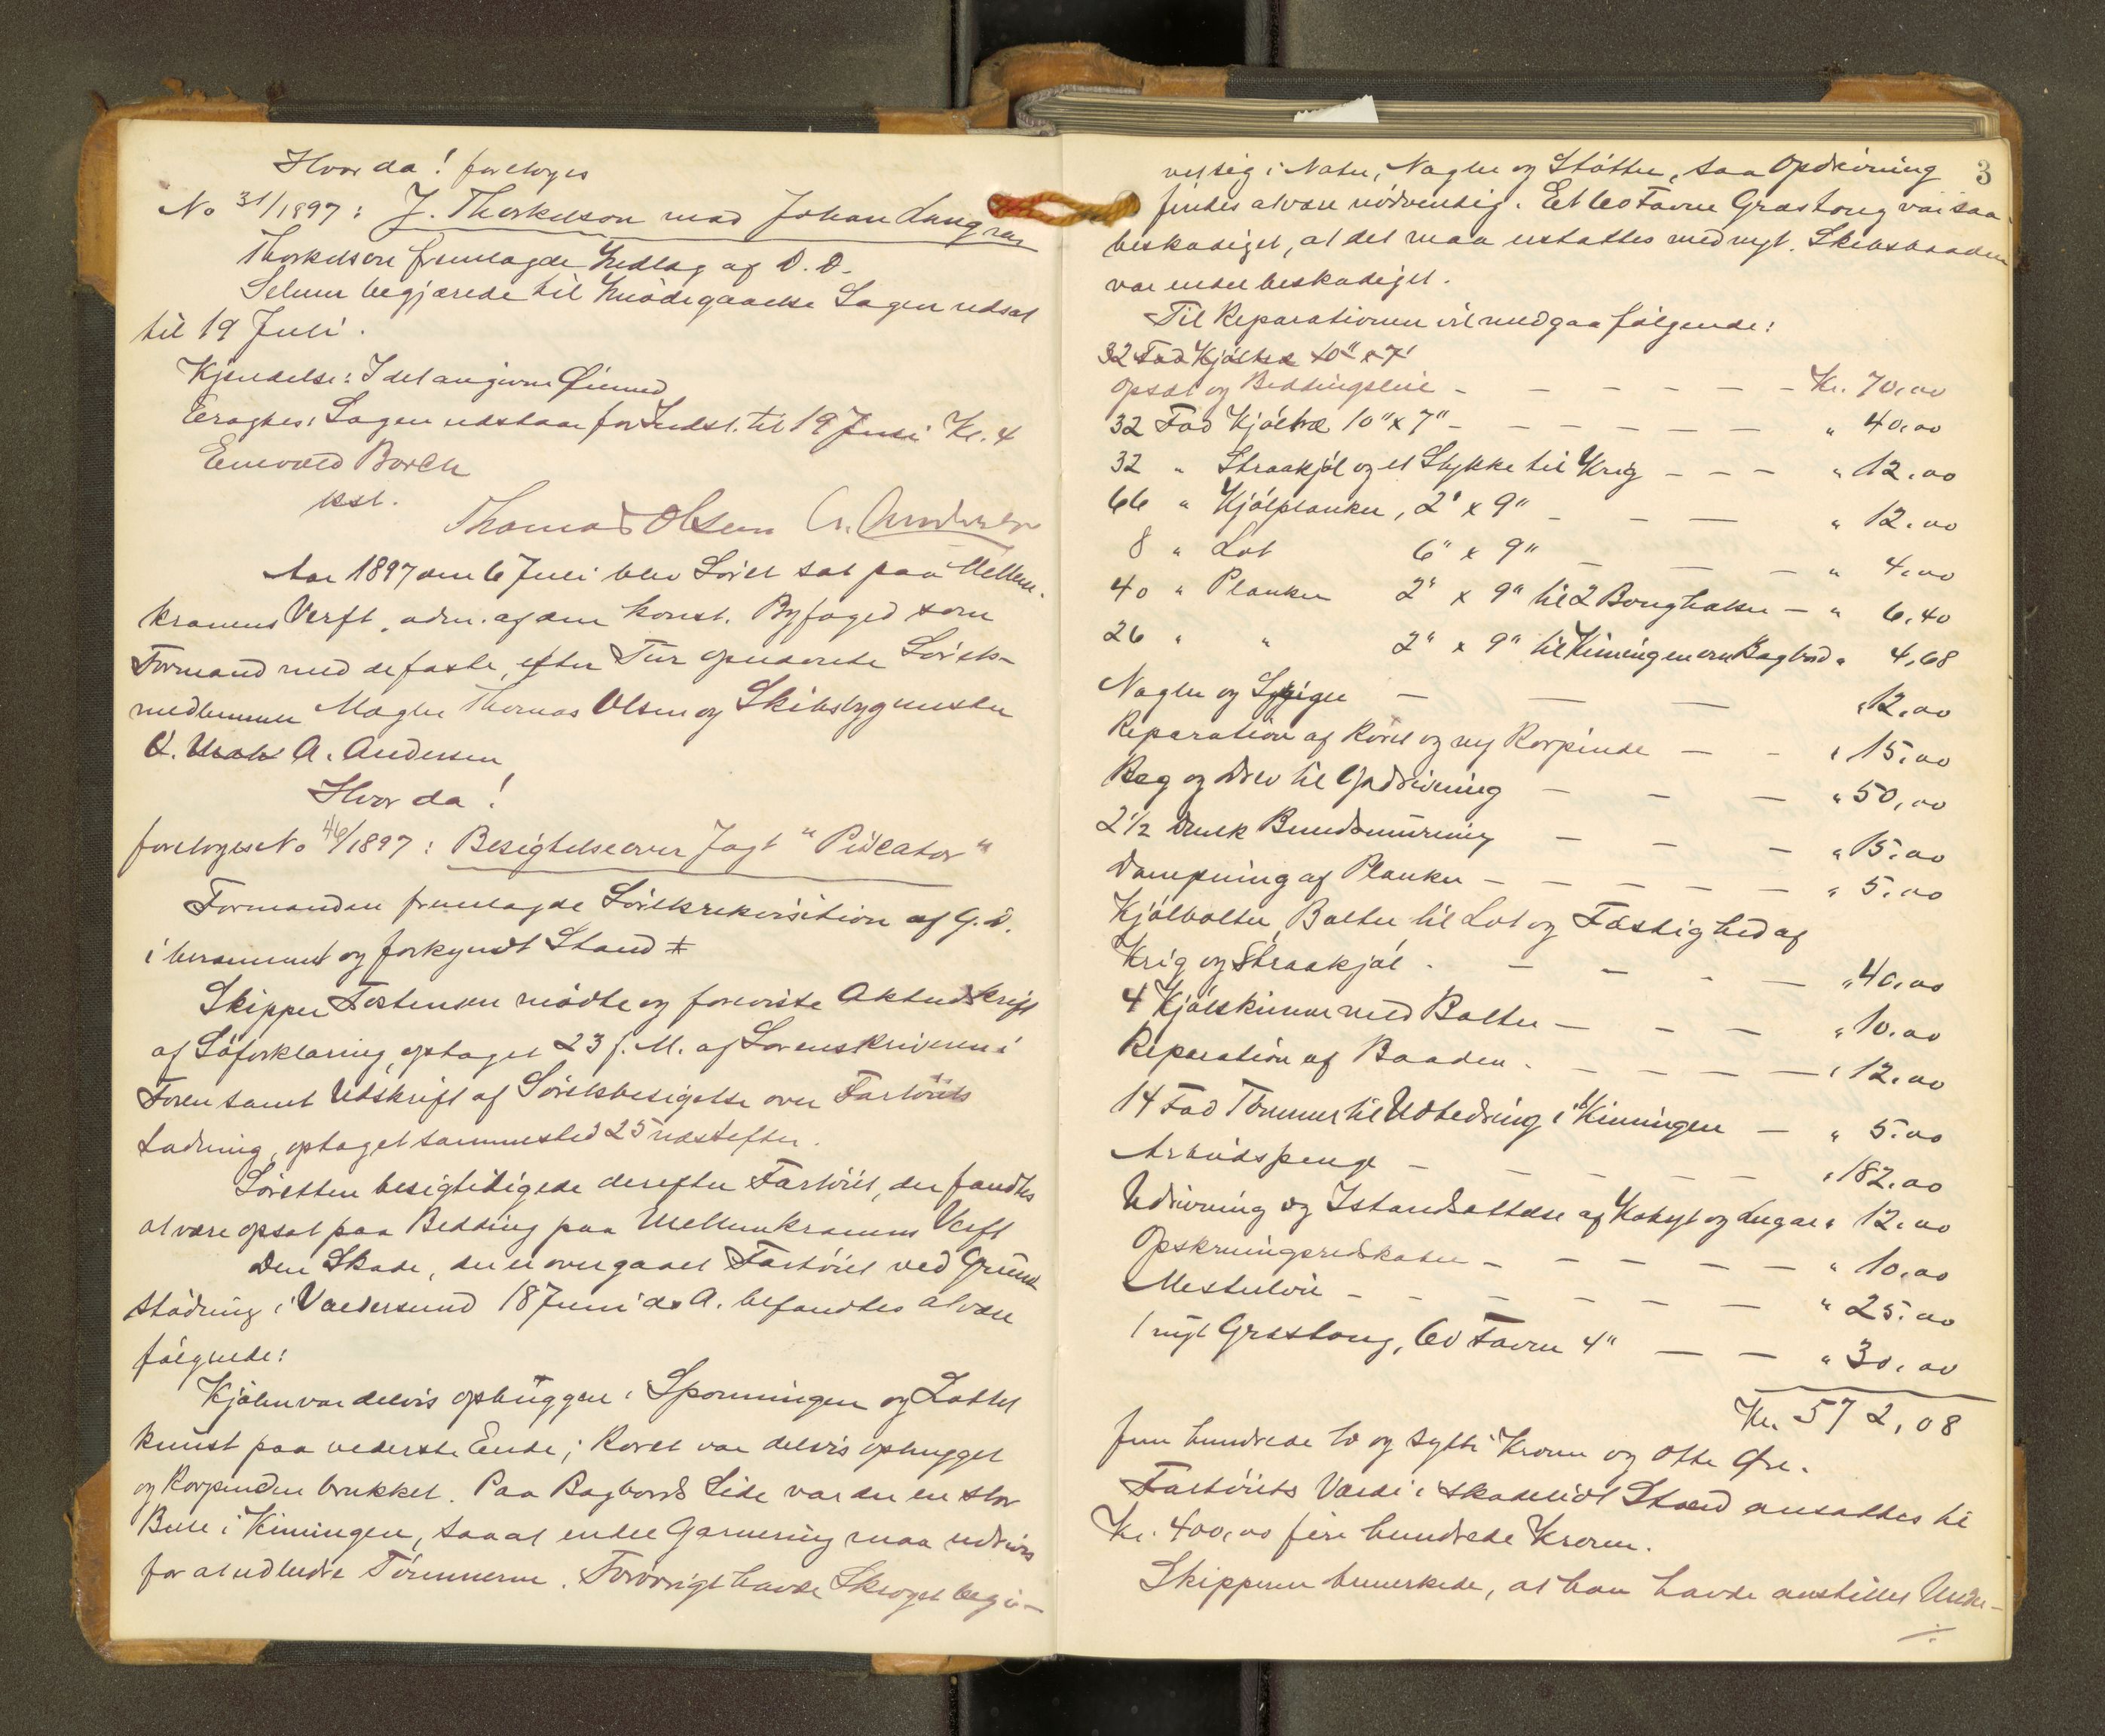 Hvor da! foretoges
No 31/1897: J. Thorkelson mod Johan Langnæs
Thorkelson fremlagde Indlæg af D.D.
Selmer begjærede til Imødegaaelse Sagen udsat
til 19 Juli.
Kjendelse: I det angivne Øiemed
eragtes: Sagen udstaar for Indst. til 19 Juli Kl. 4
Borch
kst.
Thomas Olsen A. Andersen
Aar 1897 den 6 Juli blev Søret sat paa Mellem-
kranens Verft, adm. af den konst. Byfoged som
Formand med de faste, efter Tur opnævnte Sørets-
medlemmer Mægler Thomas Olsen og Skibsbygmester
A. Andersen
Hvor da!
foretoges No 46/1897: Besigtelse over Jagt "Piscator"
Formanden fremlagde Søretsrekvisition af G.D.
i berammet og forkyndt Stand
Skipper Tostensen mødte og foreviste Aktudskrift
af Søforklaring, optaget 23 f. M. af Sorenskriveren i
Fosen samt Udskrift af Søretsbesigtelse over Fartøiets
Ladning, optaget sammested 25 næstefter.
Søretten besigtedigede derefter Fartøiet, der fandtes
at være opsat paa Bedding paa Mellemkranens Verft
Den Skade, der er overgaaet Fartøiet ved Grund-
stødning i Valdersund 18 Juni d. A. befandtes at være
følgende:
Kjølen var delvis ophuggen i Sponningen og Lottet
knust paa nederste Ende; Roret var delvis ophugget
og Rorpinden brukket. Paa Bagbords Side var der en stor
Bule i Kimingen, saa at endel Garnering maa udrives
for at udbedre Tømmerne. Forøvrigt havde Skroget begi-
3
vet sig i Nater, Nagler og Støtter, saa Opdrivning
findes at være nødvendig. Et 60 Favne Græstoug var saa
beskadiget, at det maa erstattes med nyt. Skibsbaaden
var endel beskadiget.
Til Reparationen vil medgaa følgende:
32 Fod Kjøltræ 10" x 7"
Opsæt og Beddingsleie - - - - - - Kr. 70,00
32 Fod Kjøltræ 10" x 7" - - - - - - " 40,00
32 " Straakjøl og et Stykke til Krig - - - " 12.00
66 " Kjølplanker, 2" x 9" - - - " 12.00
8 " Lot 6" x 9" - - - " 4,00
40 " Planker 2" x 9" til 2 Boughalser - " 6,40
26 " " 2" x 9" til Kimingen om Bagbord " 4,68
Nagler og Spiger - - - " 12,00
Reparation af Roret og ny Rorpinde - - " 15,00
Beg og Drev til Opdrivning - - - " 50,00
2 1/2 Dunk Bundsmurning - - - " 15,00
Dampning af Planker - - - - - " 5,00
Kjølbolter, Bolter til Lot og Fæstighed af
Krig og Straakjøl. - - - - " 40,00
4 Kjølskinner med Bolter - - - " 10.00
Reparation af Baaden. - - - - " 12,00
14 Fod Tømmer til Udbedring i Kimingen - " 5,00
Arbeidspenge - - - - " 182,00
Udrivning og Istandsættelse af Kahyt og Lugar " 12,00
Opskruingsredskaber - - - - - " 10,00
Mesterløn - - - - - - " 25.00
1 nyt Græstoug, 60 Favne 4" - - " 30,00
Kr. 572,08
fem hundrede to og sytti Kroner og otte Øre.
Fartøiets Værdi i skadelidt Stand ansattes til
Kr. 400,00 fire hundrede Kroner.
Skipperen bemerkede, at han havde anstillet Under-